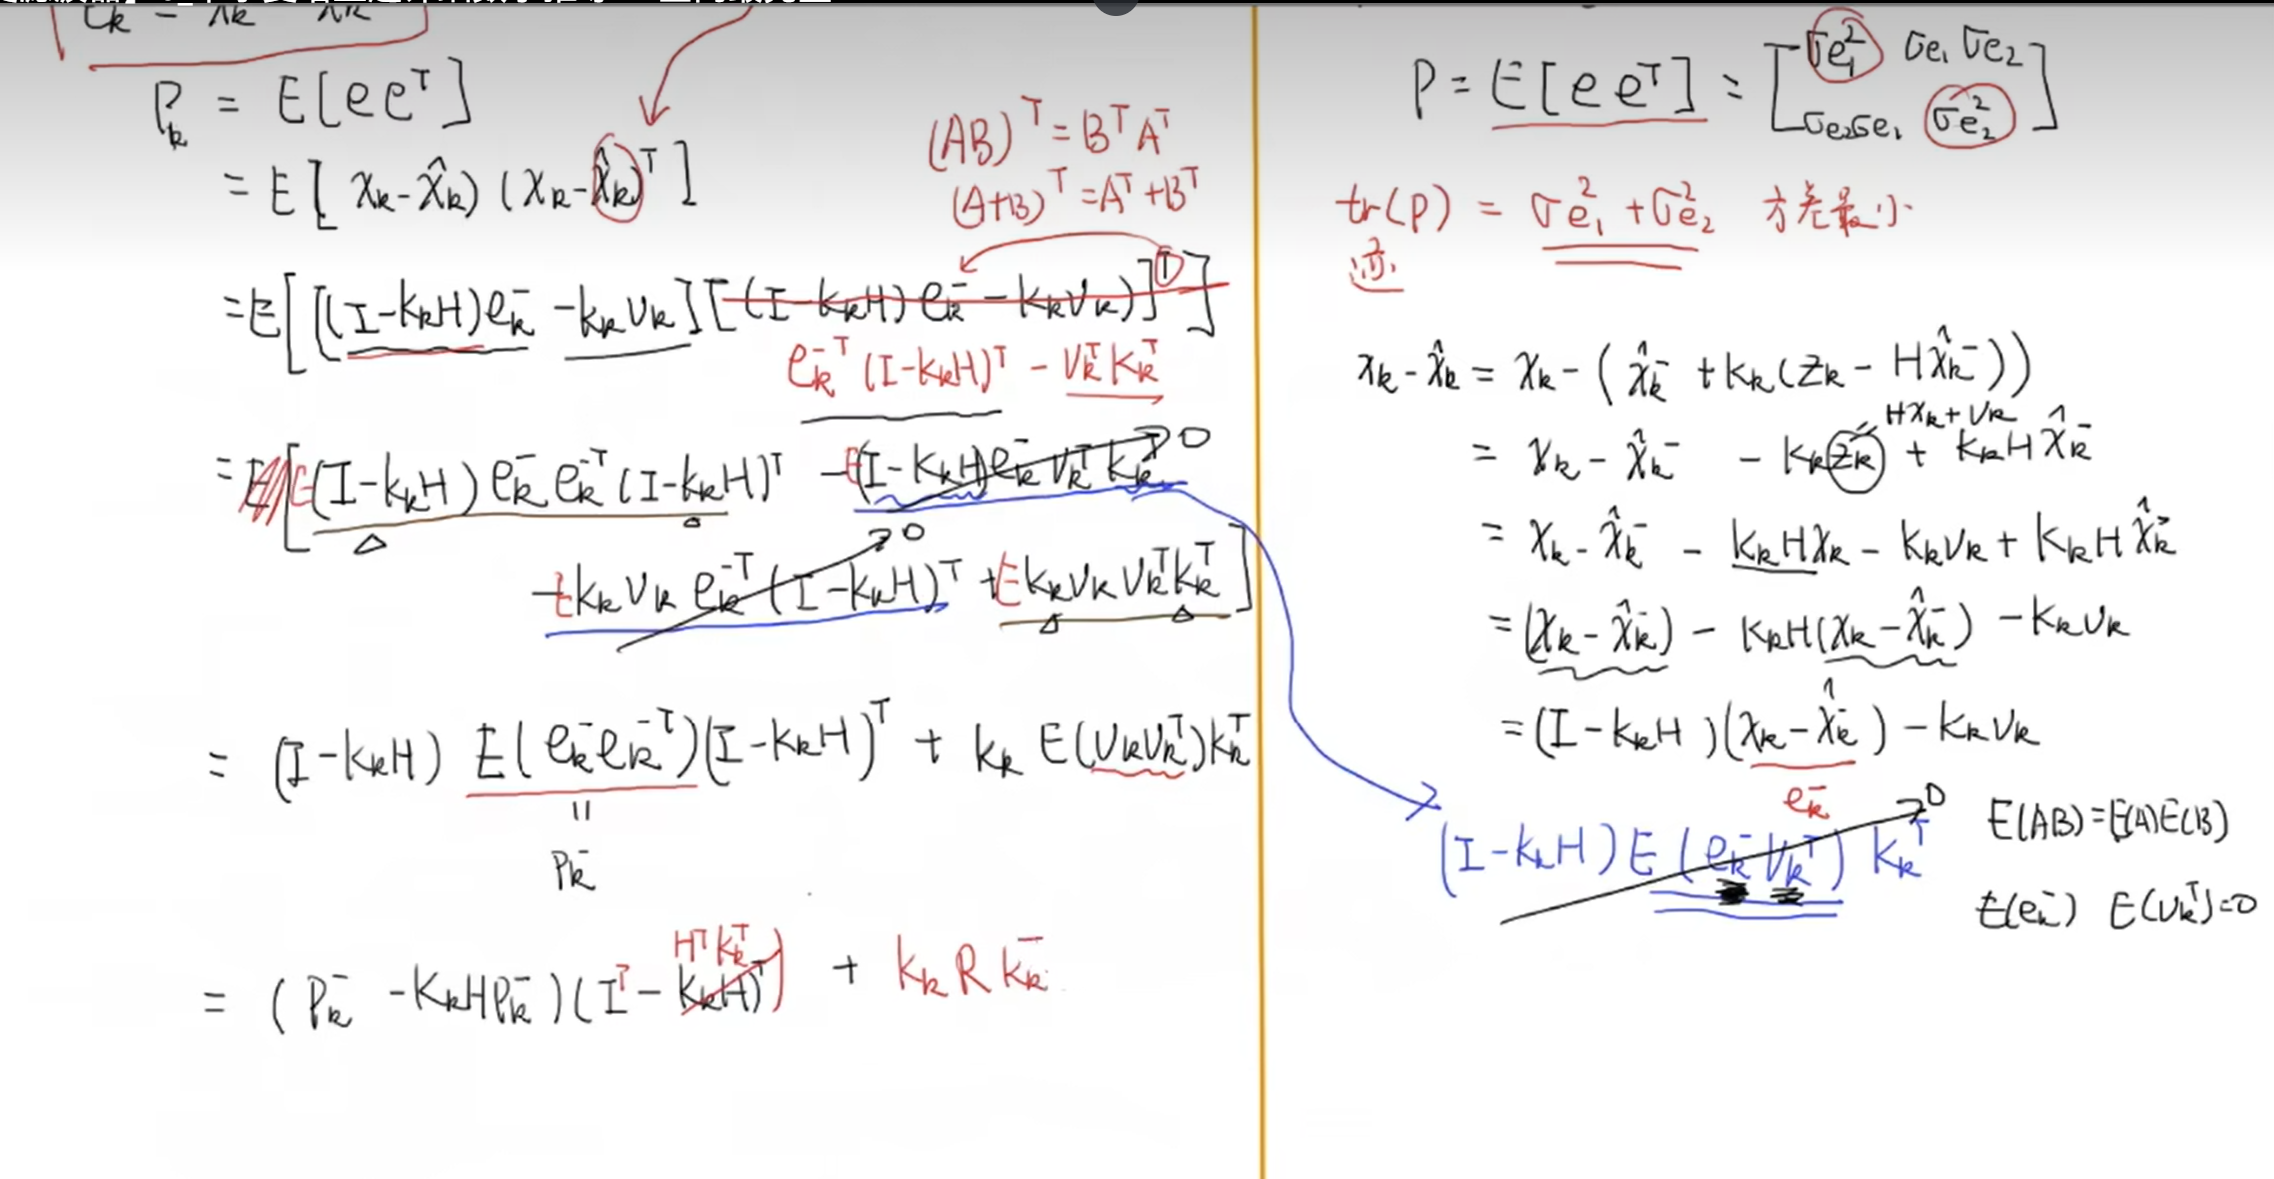 P_k = E[e e^T]
= E[ x_k - x̂_k) (x_k - x̂_k)^T ]
(AB)^T = B^T A^T
(A+B)^T = A^T + B^T
= E[ [(I-k_kH)e_k^- - k_kv_k] [(I-k_kH)e_k^- - k_kv_k)]^T ]
e_k^{-T} (I-k_kH)^T - v_k^T k_k^T
= E[ E(I-k_kH) e_k^- e_k^{-T} (I-k_kH)^T - E(I-k_kH)e_k^- v_k^T k_k^T → 0
- E k_k v_k e_k^{-T} (I-k_kH)^T → 0 + E k_k v_k v_k^T k_k^T ]
= (I-k_kH) E(e_k^- e_k^{-T}) (I-k_kH)^T + k_k E(v_k v_k^T) k_k^T
||
P_k^-
H^T k_k^T
= (P_k^- - k_kHP_k^-)(I^T - k_kH)^T) + k_k R k_k^-
P = E[e e^T] = [σe_1^2 σe_1 σe_2
σe_2 σe_1 σe_2^2]
tr(P) = σe_1^2 + σe_2^2 方差最小
迹
x_k - x̂_k = x_k - ( x̂_k^- + k_k(z_k - Hx̂_k^-))
Hx_k + v_k
= x_k - x̂_k^- - k_k z_k + k_kH x̂_k^-
= x_k - x̂_k^- - k_kHx_k - k_kv_k + k_kH x̂_k^-
= (x_k - x̂_k^-) - k_kH(x_k - x̂_k^-) - k_kv_k
= (I-k_kH)(x_k - x̂_k^-) - k_kv_k
e_k^-
(I-k_kH) E(e_k^- v_k^T) k_k^T → 0
E(AB) = E(A)E(B)
E(e_k^-) E(v_k^T) = 0